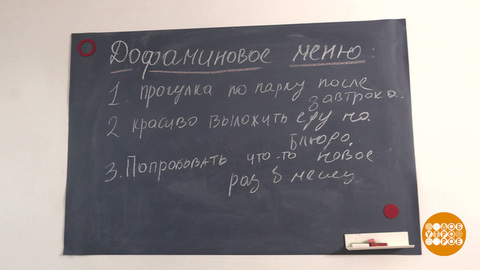 Дофаминовое меню:
1. прогулка по парку после
завтрака.
2 красиво выложить еду на
блюдо.
3. Попробовать что-то новое
раз в месяц
ДОБ
УТРО
РОЕ